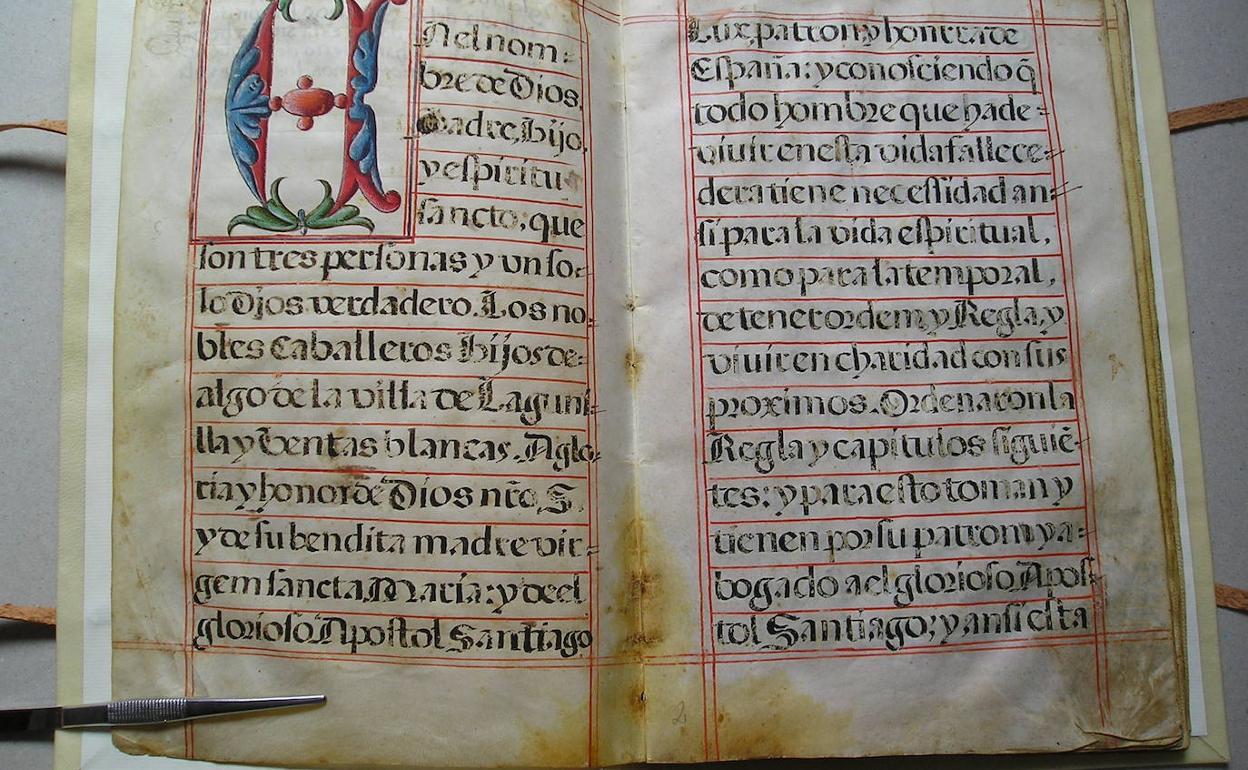 N el nom=
bre de Dios,
Padre, hijo,
y eſpiritu
ſancto, que
ſon tres perſonas y un ſo=
lo Dios verdadero. Los no=
bles Caballeros Hijos de=
algo de la villa de Laguni=
lla y Ventas blancas. A glo=
ria y honor de Dios nr̃o, S.
y de ſu bendita madre vir=
gem ſancta Maria: y de el
glorioſo Apoſtol Santiago
Luz, patron y honrra de
España: y conoſciendo q̃
todo hombre que ha de=
viuir en eſta vida fallece=
dera tiene neceſſidad an=
ſi para la vida eſpiritual,
como para la temporal,
de tener orden y Regla, y
viuir en charidad con ſus
proximos. Ordenaron la
Regla y capitulos ſiguiẽ=
tes: y para eſto toman y
tienen por ſu patron y a=
bogado a el glorioſo Apoſ=
tol Santiago; y anſi eſta
2